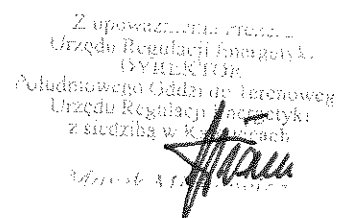 Z upoważnienia Prezesa
Urzędu Regulacji Energetyki
DYREKTOR
Południowego Oddziału Terenowego
Urzędu Regulacji Energetyki
z siedzibą w Katowicach